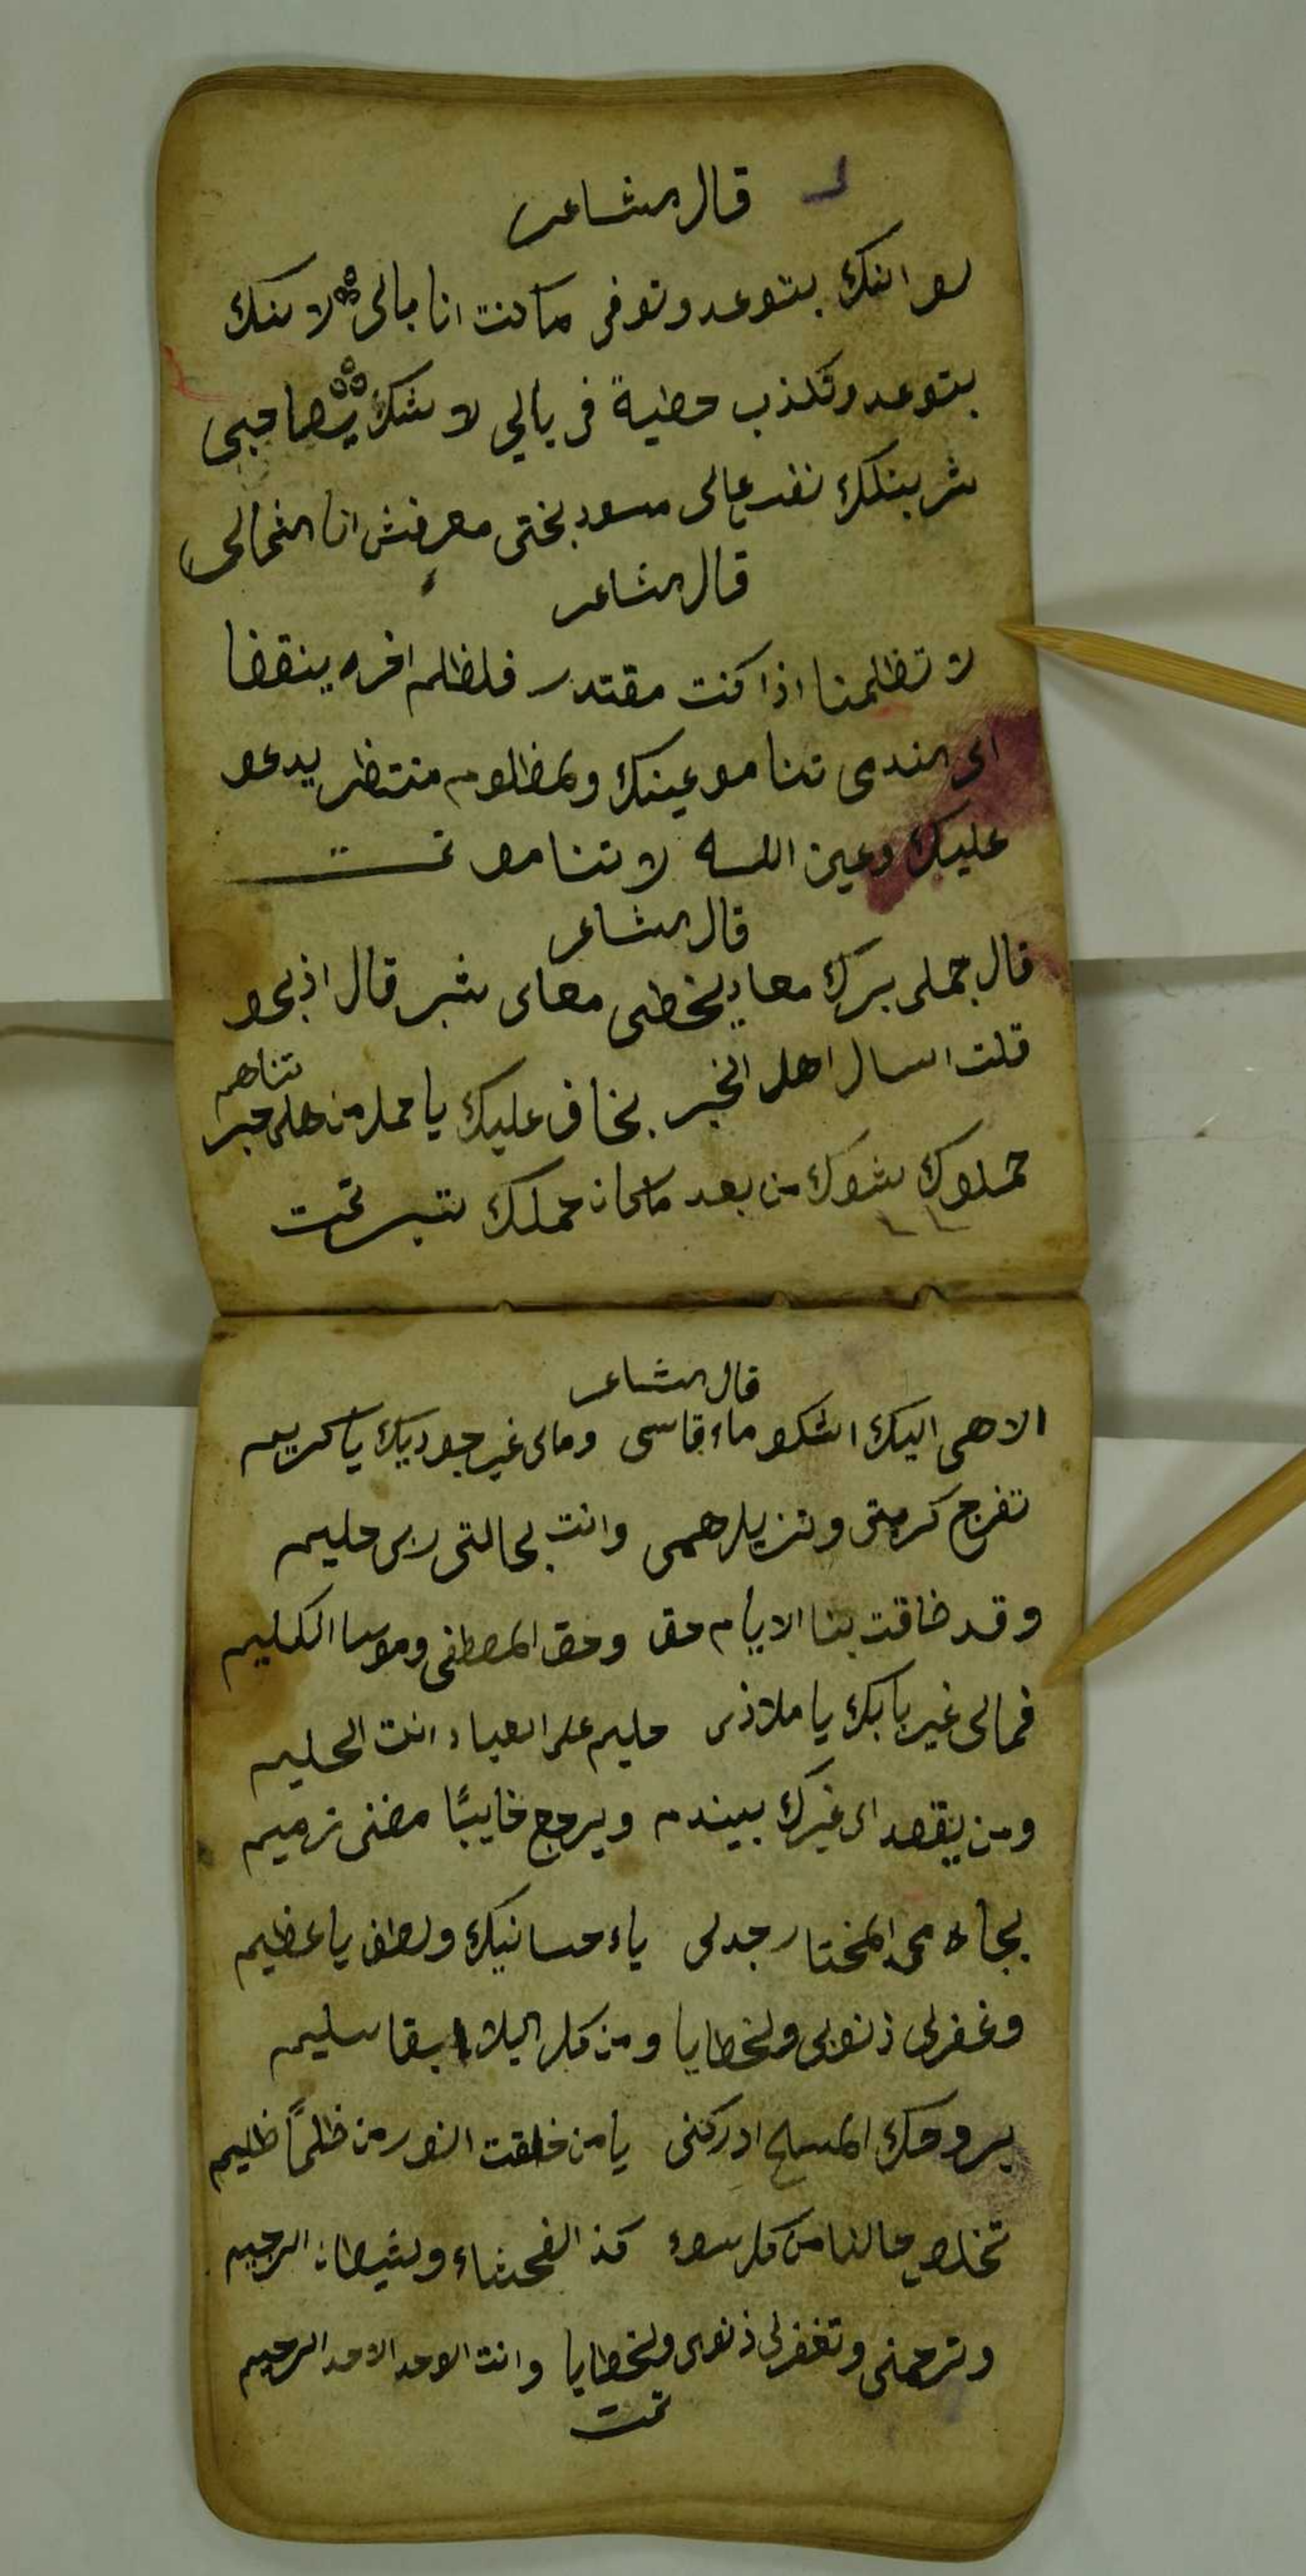 قال الشاعر
لو انك بتوعد وتوفى ما كنت انا بالى لانك
بتوعد وتكذب حطية فى بالي لا شك يصاحبى
نفسه عالى سود بختى معرفش انا
قال الشاعر
لا تظلمنا اذا كنت مقتدر فلظلم اخره ينقضا
الى الندى تنامو عينك ولمظلوم منتظر يدعو
عليك وعين الله لا تنامو تمت
قال الشاعر
قال جملى برك معاى بخطى معاى شبر قال اذبحو
قلت اسال اهل الخبر بخاف عليك يا جمل من هل خبر
حملوك شوك من بعد ماكان حملك تبر تمت
قال الشاعر
الاهى اليك اشكو ماء قاسى ومالى غير جوديك يا كريم
تفرج كربتى وتزيل همى وانت بحالتى ربى عليم
وقد ضاقت بنا الايام حقا وحق المصطفى وموسا الكليم
فمالى غير بابك يا ملاذى حليم على العباد انت الحليم
ومن يقصد الى غيرك بيندم ويرجع خايبًا مضنى ذميم
بجاه محمد المختار جدلى ياء حسانيك ولطف يا عظيم
وغفرلى ذنوبى ولخطايا ومن كل البلا ابقا سليم
بروحك المسيح ادركنى يا من خلقت النور من ظلمًا ظليم
تخلص حالنا من كل سوء كذ الفحشاء ولشيطان الرجيم
وترحمنى وتغفرلى ذنوبى ولخطايا وانت الوحد الاحد الرحيم
تمت